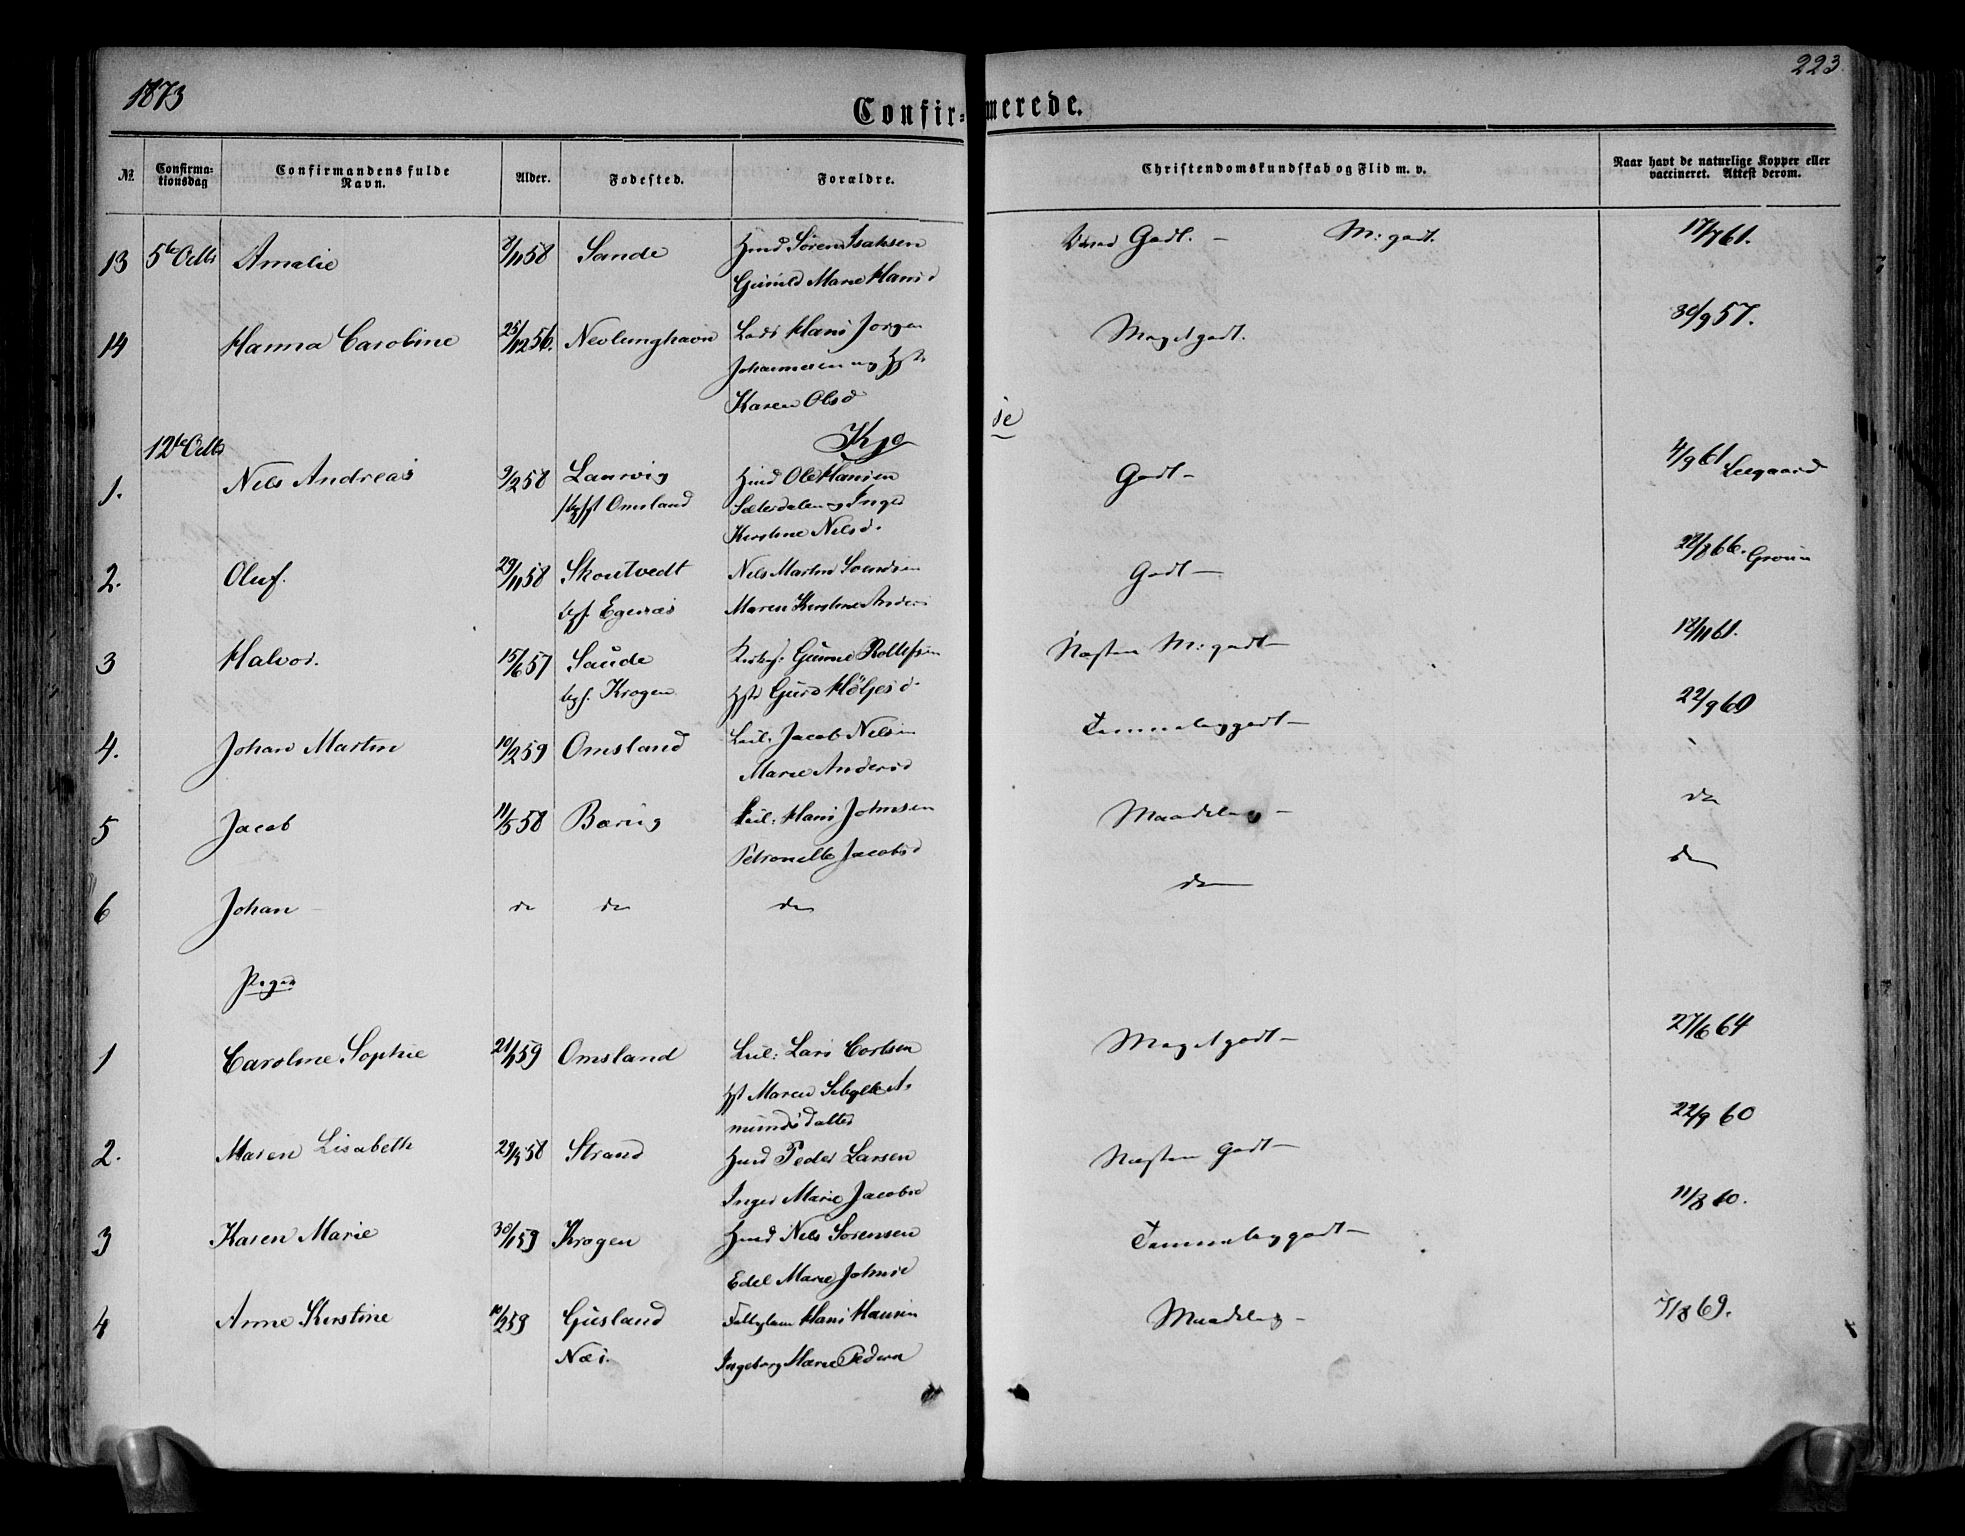 1873
223.
Confir-merede.
No.
Confirmationsdag
Confirmandens fulde Navn.
Alder.
Fødested.
Forældre.
Christendomskundskab og Flid m. v.
Naar havt de naturlige Kopper eller vaccineret. Attest derom.
13 5te Octb Amalie 8/11 58 Sande Hmd Søren Isaksen Godt. – M: godt. 17/7 61.
Gunild Marie Hansd
14 Hanna Caroline 25/12 56. Nevlunghavn Lods Hans Jørgen Meget godt. 30/9 57.
Johannesen og Hst.
Karen Olsd
12te Octb Kjø je
1. Nils Andreas 9/2 58 Laurvig Hmd Ole Hansen Godt – 4/9 61 Leegaard
Omsland Sæterdalen og Inger
Kirstine Nilsd.
2. Oluf. 29/11 58 Skoutvedt Nils Martin Godt – 22/8 66.
Maren Kirstine Anders
3 Halvor. 15/6 57 Saude Gunne Rollefsen Næsten M: godt – 12/11 61.
Krogen Hst Guro
4. Johan Martin 10/2 59 Omsland Leil: Jacob Nilsen Temmelig godt – 22/9 60
Marie Andersd
5 Jacob 11/5 58 Barug Leil: Hans Johnsen Maadelig – do
Petronelle Jacobsd
6 Johan – do do do do do
Piger
1 Caroline Sophie 21/1 59 Omsland Leil: Lars Meget godt – 27/6 64
Hst Maren Sibylle A
mundsdatter
2. Maren Lisabeth 29/5 58 Strand Hmd Peder Larsen Næsten Godt – 22/9 60
Inger Marie Jacobsd
3 Karen Marie 30/1 59 Krogen Hmd Nils Sørensen Temmelig godt – 11/8 60.
Edel Marie Johnsd
4 Anne Kirstine 10/2 59 Gusland Hans Hansen Maadelig – 7/8 69.
Næs. Ingeborg Marie Peders